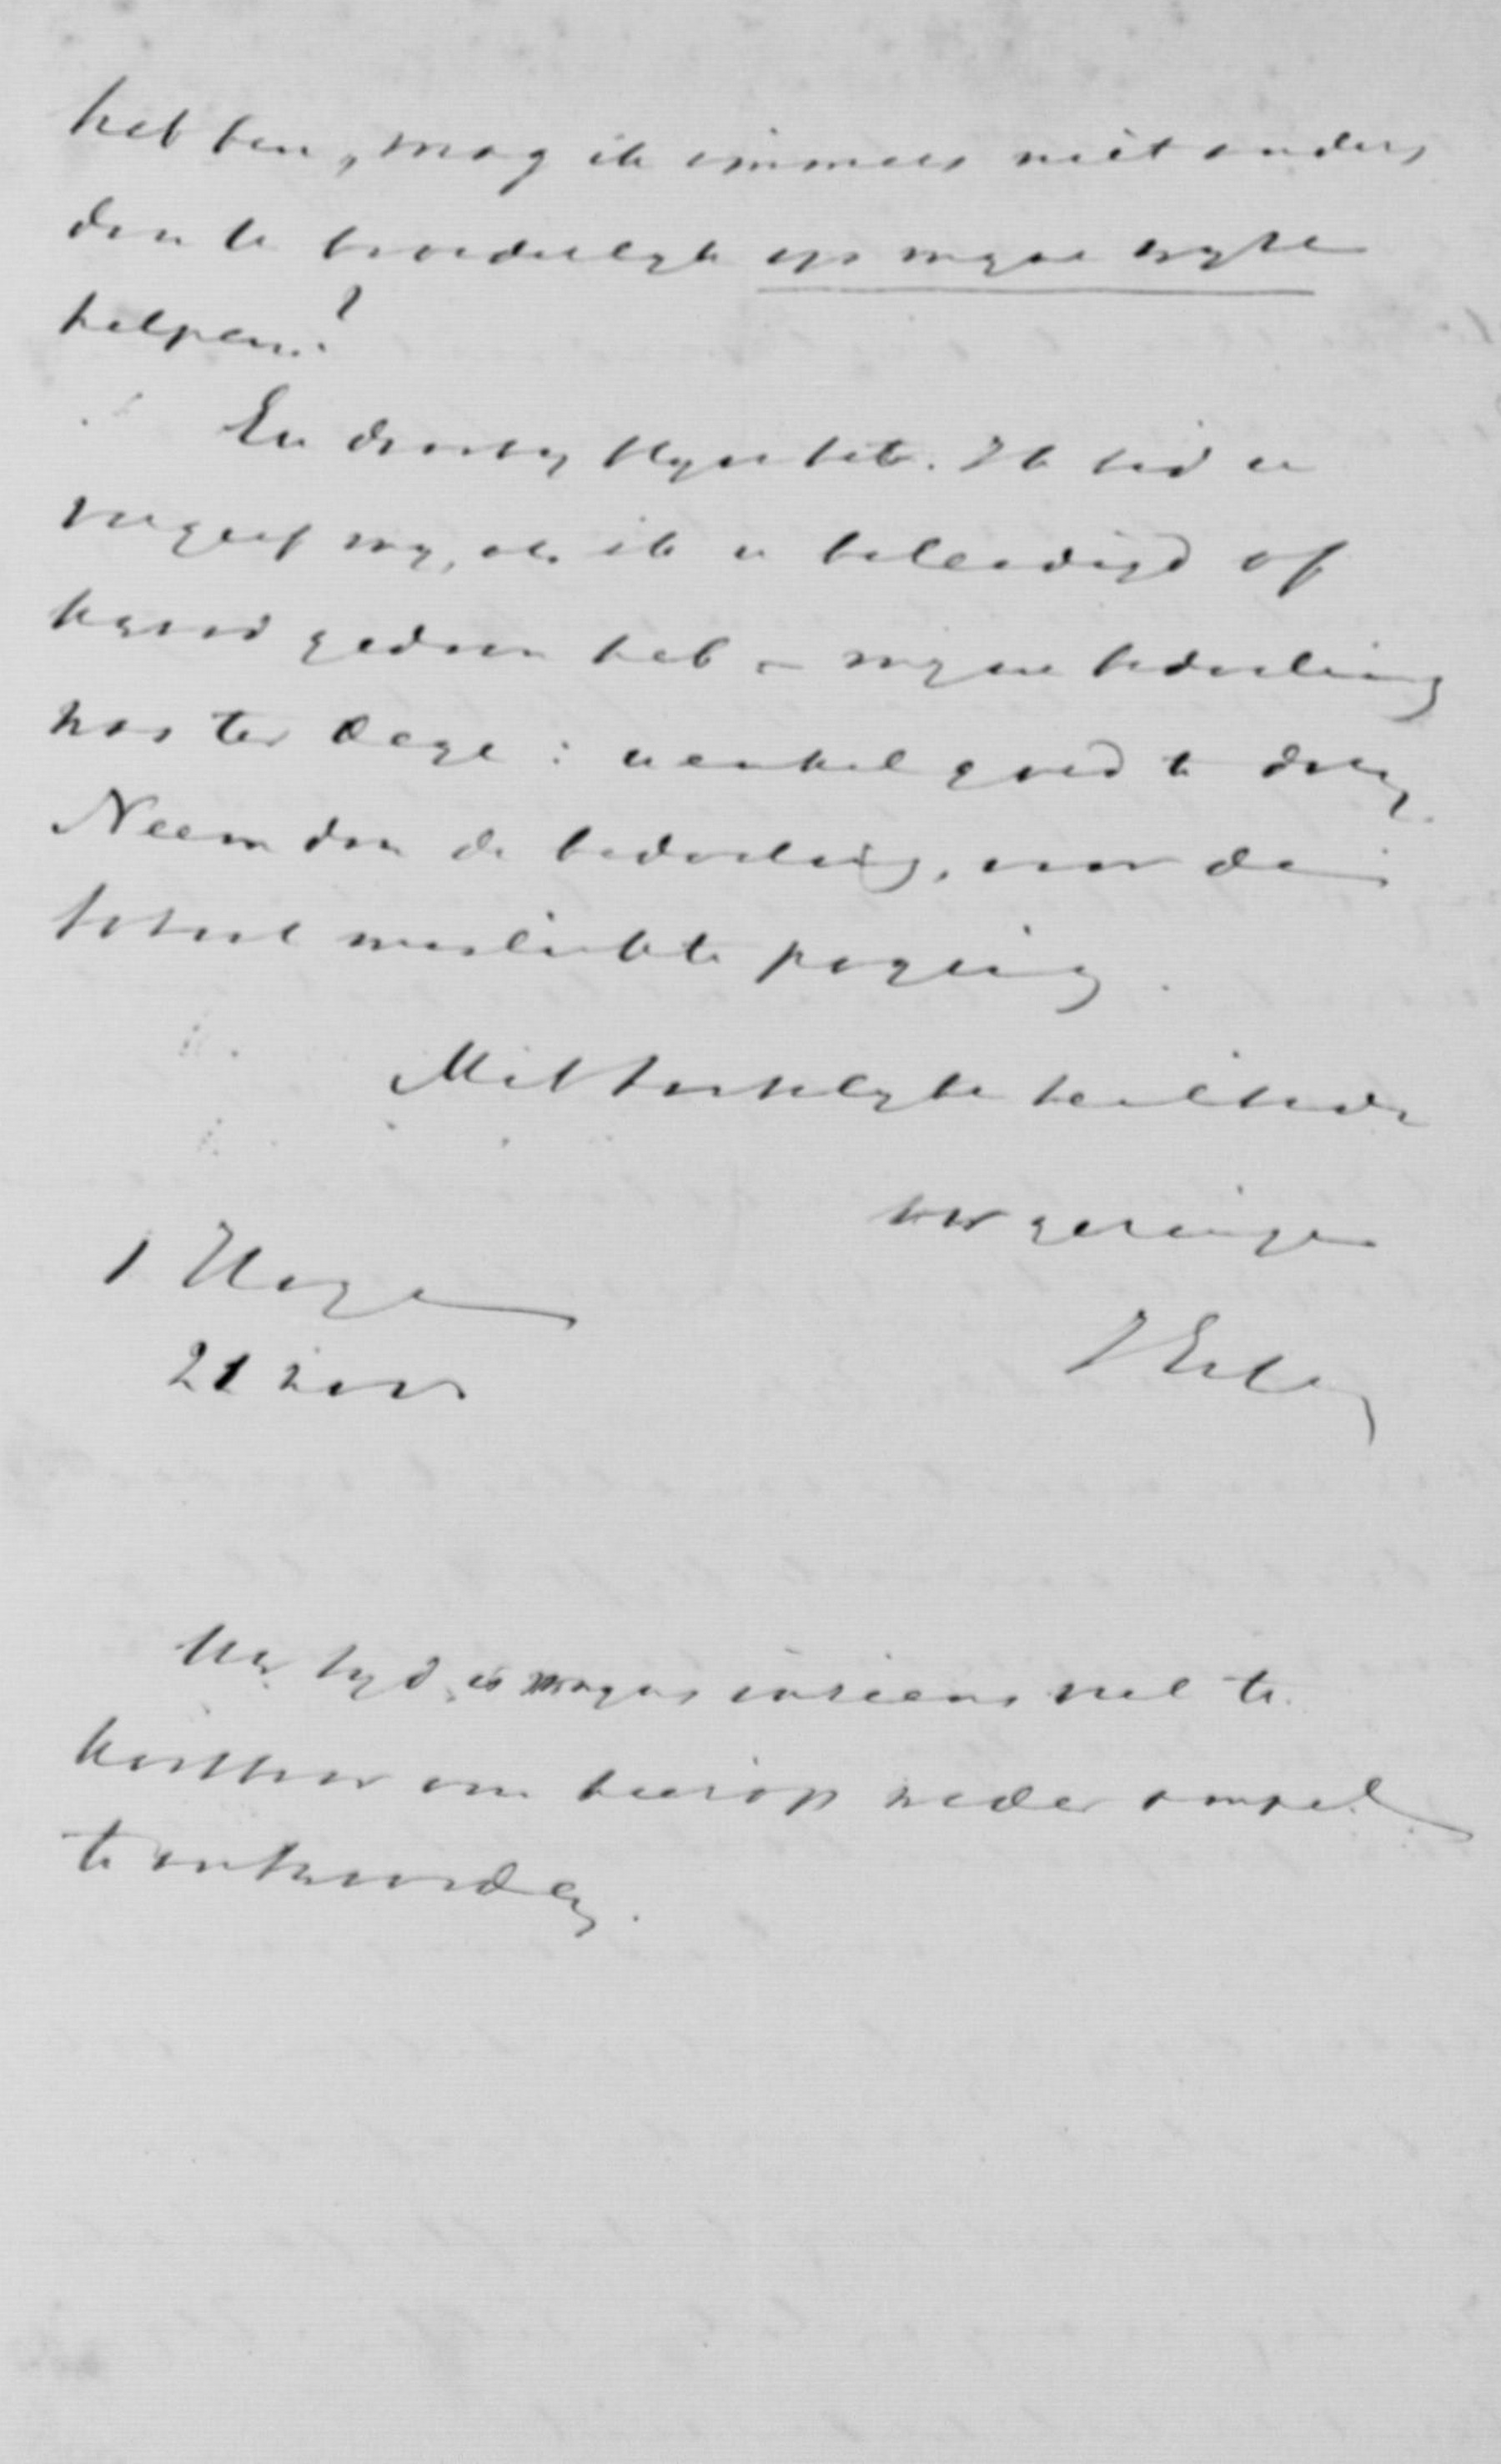 hebben, mag ik immers niet anders
dan te broederlyk op myne wyze
helpen?
En daarby blyve het. Ik bid u
vergeef my, als ik u beleedigd of
kwaad gedaan heb – myne bedoeling
was ter dege: u enkel goed te doen.
Neem dan de bedoeling, voor de
totaal mislukte poging.
Met hartelyke heilbede
uw geringe
's Hage
21 nov
Uw tyd is mogys insiens veel te
kostbaar om hierop weder ampel
te antwoorden.